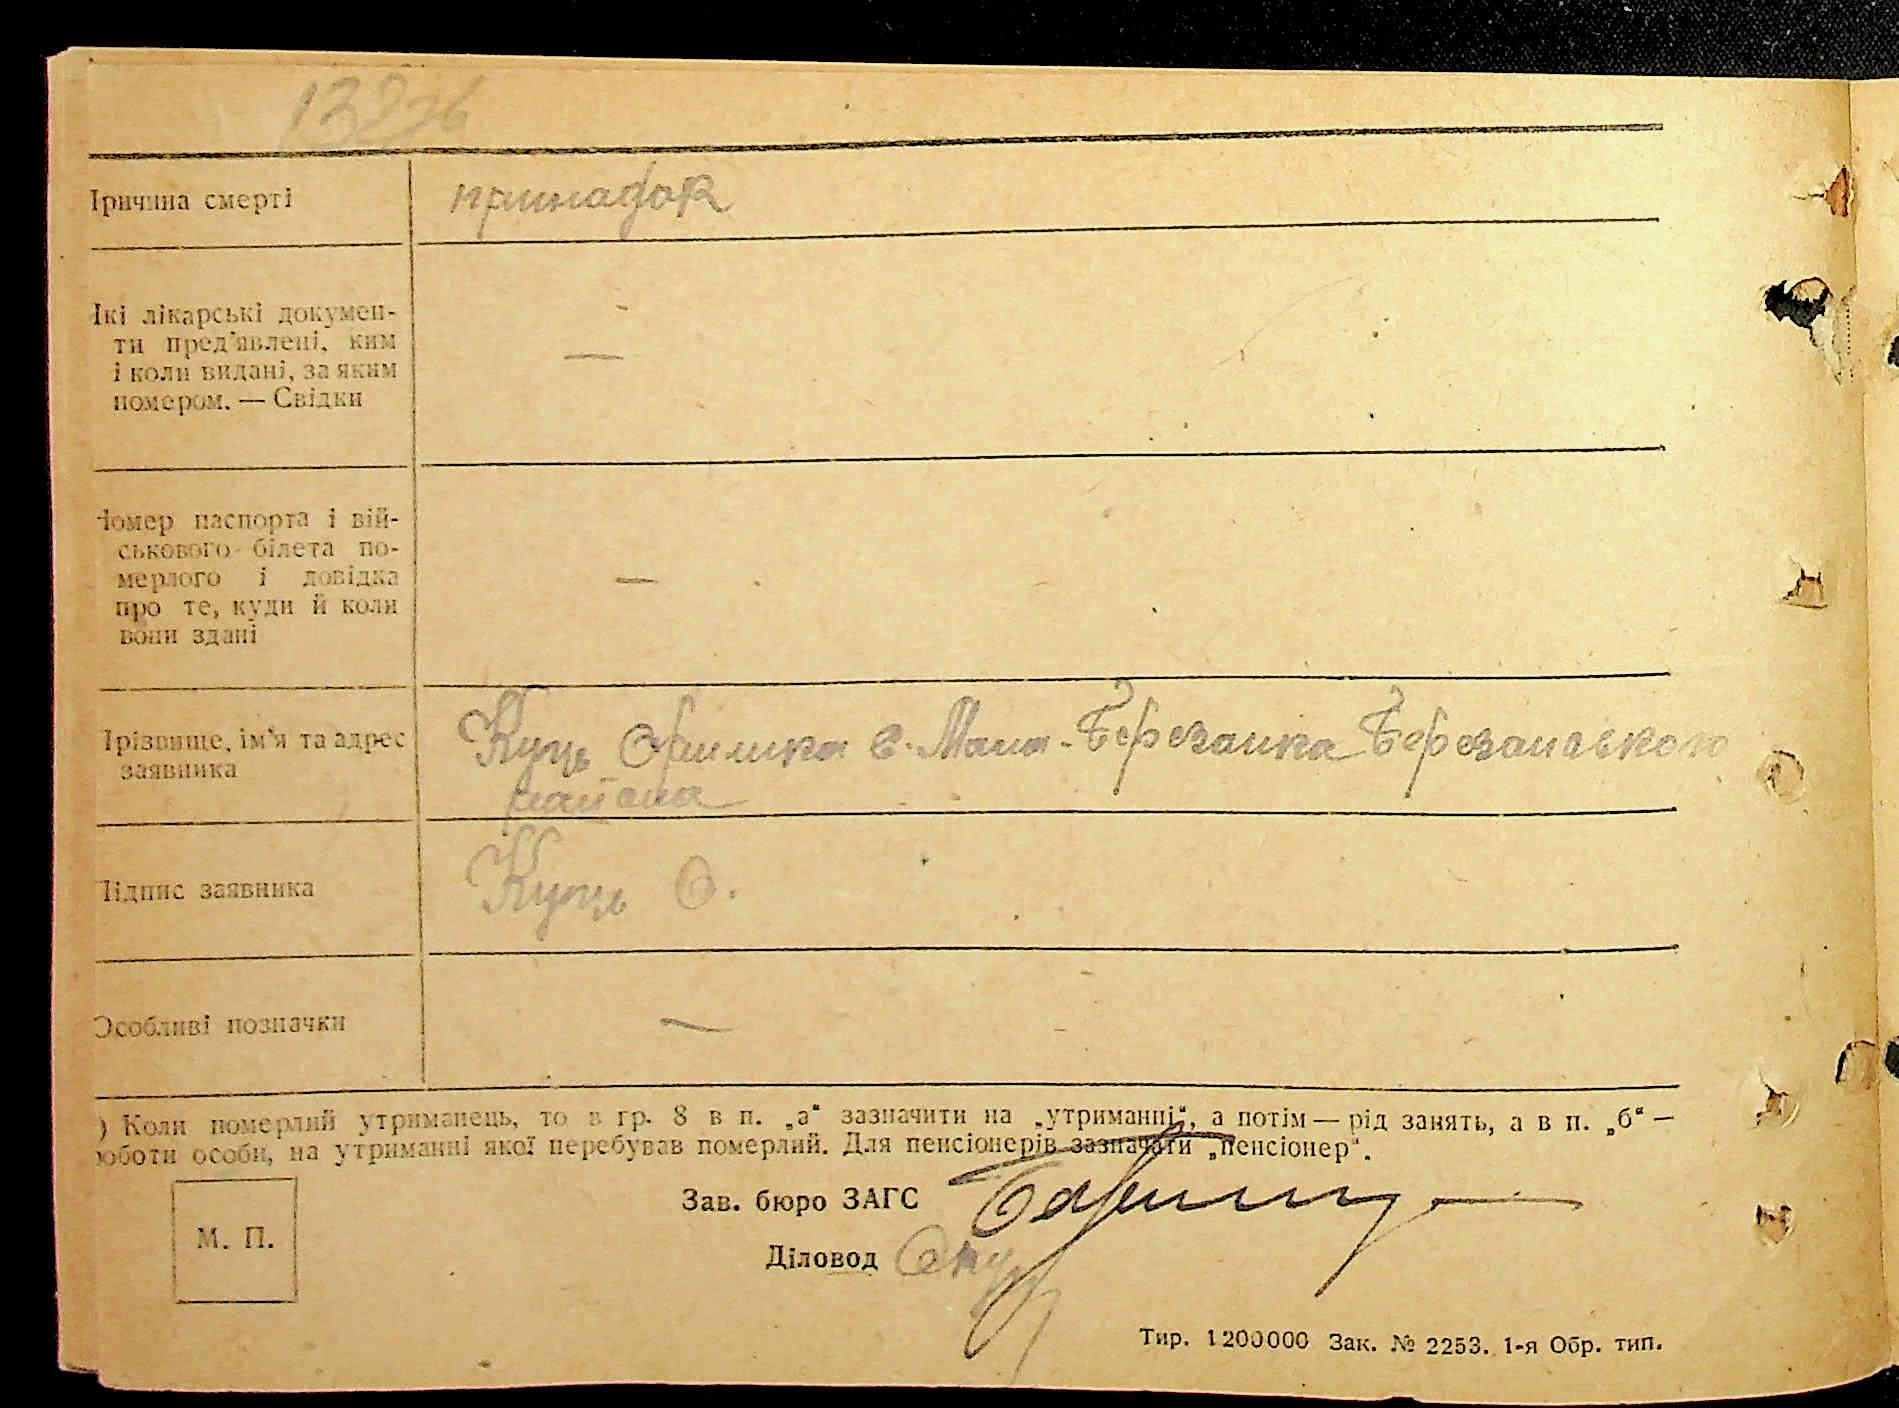 132зв
Причина смерті припадок
Які лікарські докумен-
ти пред'явлені, ким
і коли видані, за яким
номером. — Свідки —
Номер паспорта і вій-
ськового білета по-
мерлого і довідка
про те, куди й коли
вони здані —
Прізвище, ім'я та адрес
заявника
Куць Оришка с. Мала-Березанка Березанського
району
Підпис заявника Куць О.
Особливі позначки —
) Коли померлий утриманець, то в гр. 8 в п. „а“ зазначити на „утриманні“, а потім — рід занять, а в п. „б“ —
роботи особи, на утриманні якої перебував померлий. Для пенсіонерів зазначати „пенсіонер“.
М. П.
Зав. бюро ЗАГС
Діловод
Тир. 1200000 Зак. № 2253. 1-я Обр. тип.